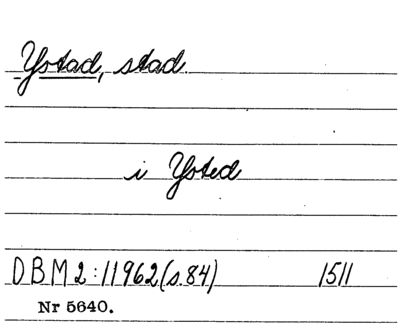 Ystad, stad.
i Ysted
DBM 2:11962(s.84) 1511
Nr 5640.